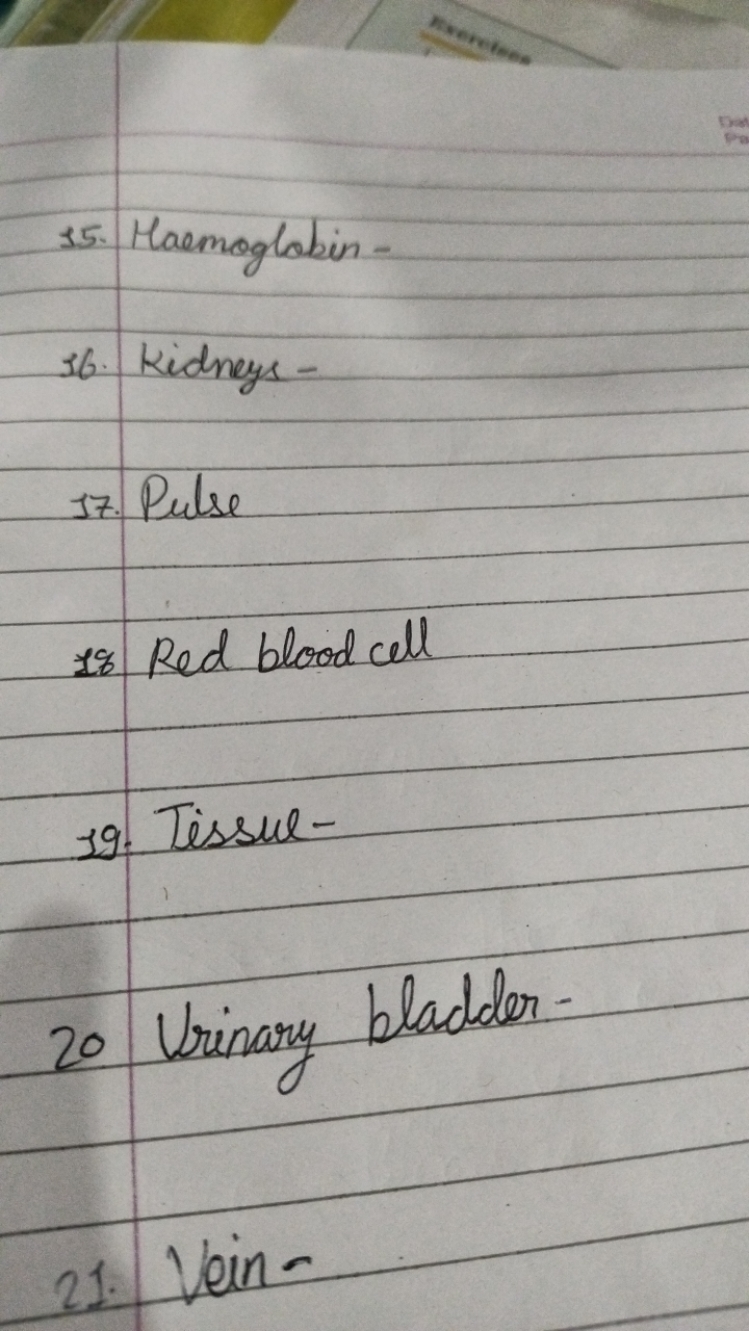 Exercises
Dat
Pa
15. Haemoglobin -
16. Kidneys -
17. Pulse
18 Red blood cell
19. Tissue -
20 Urinary bladder -
21. Vein -